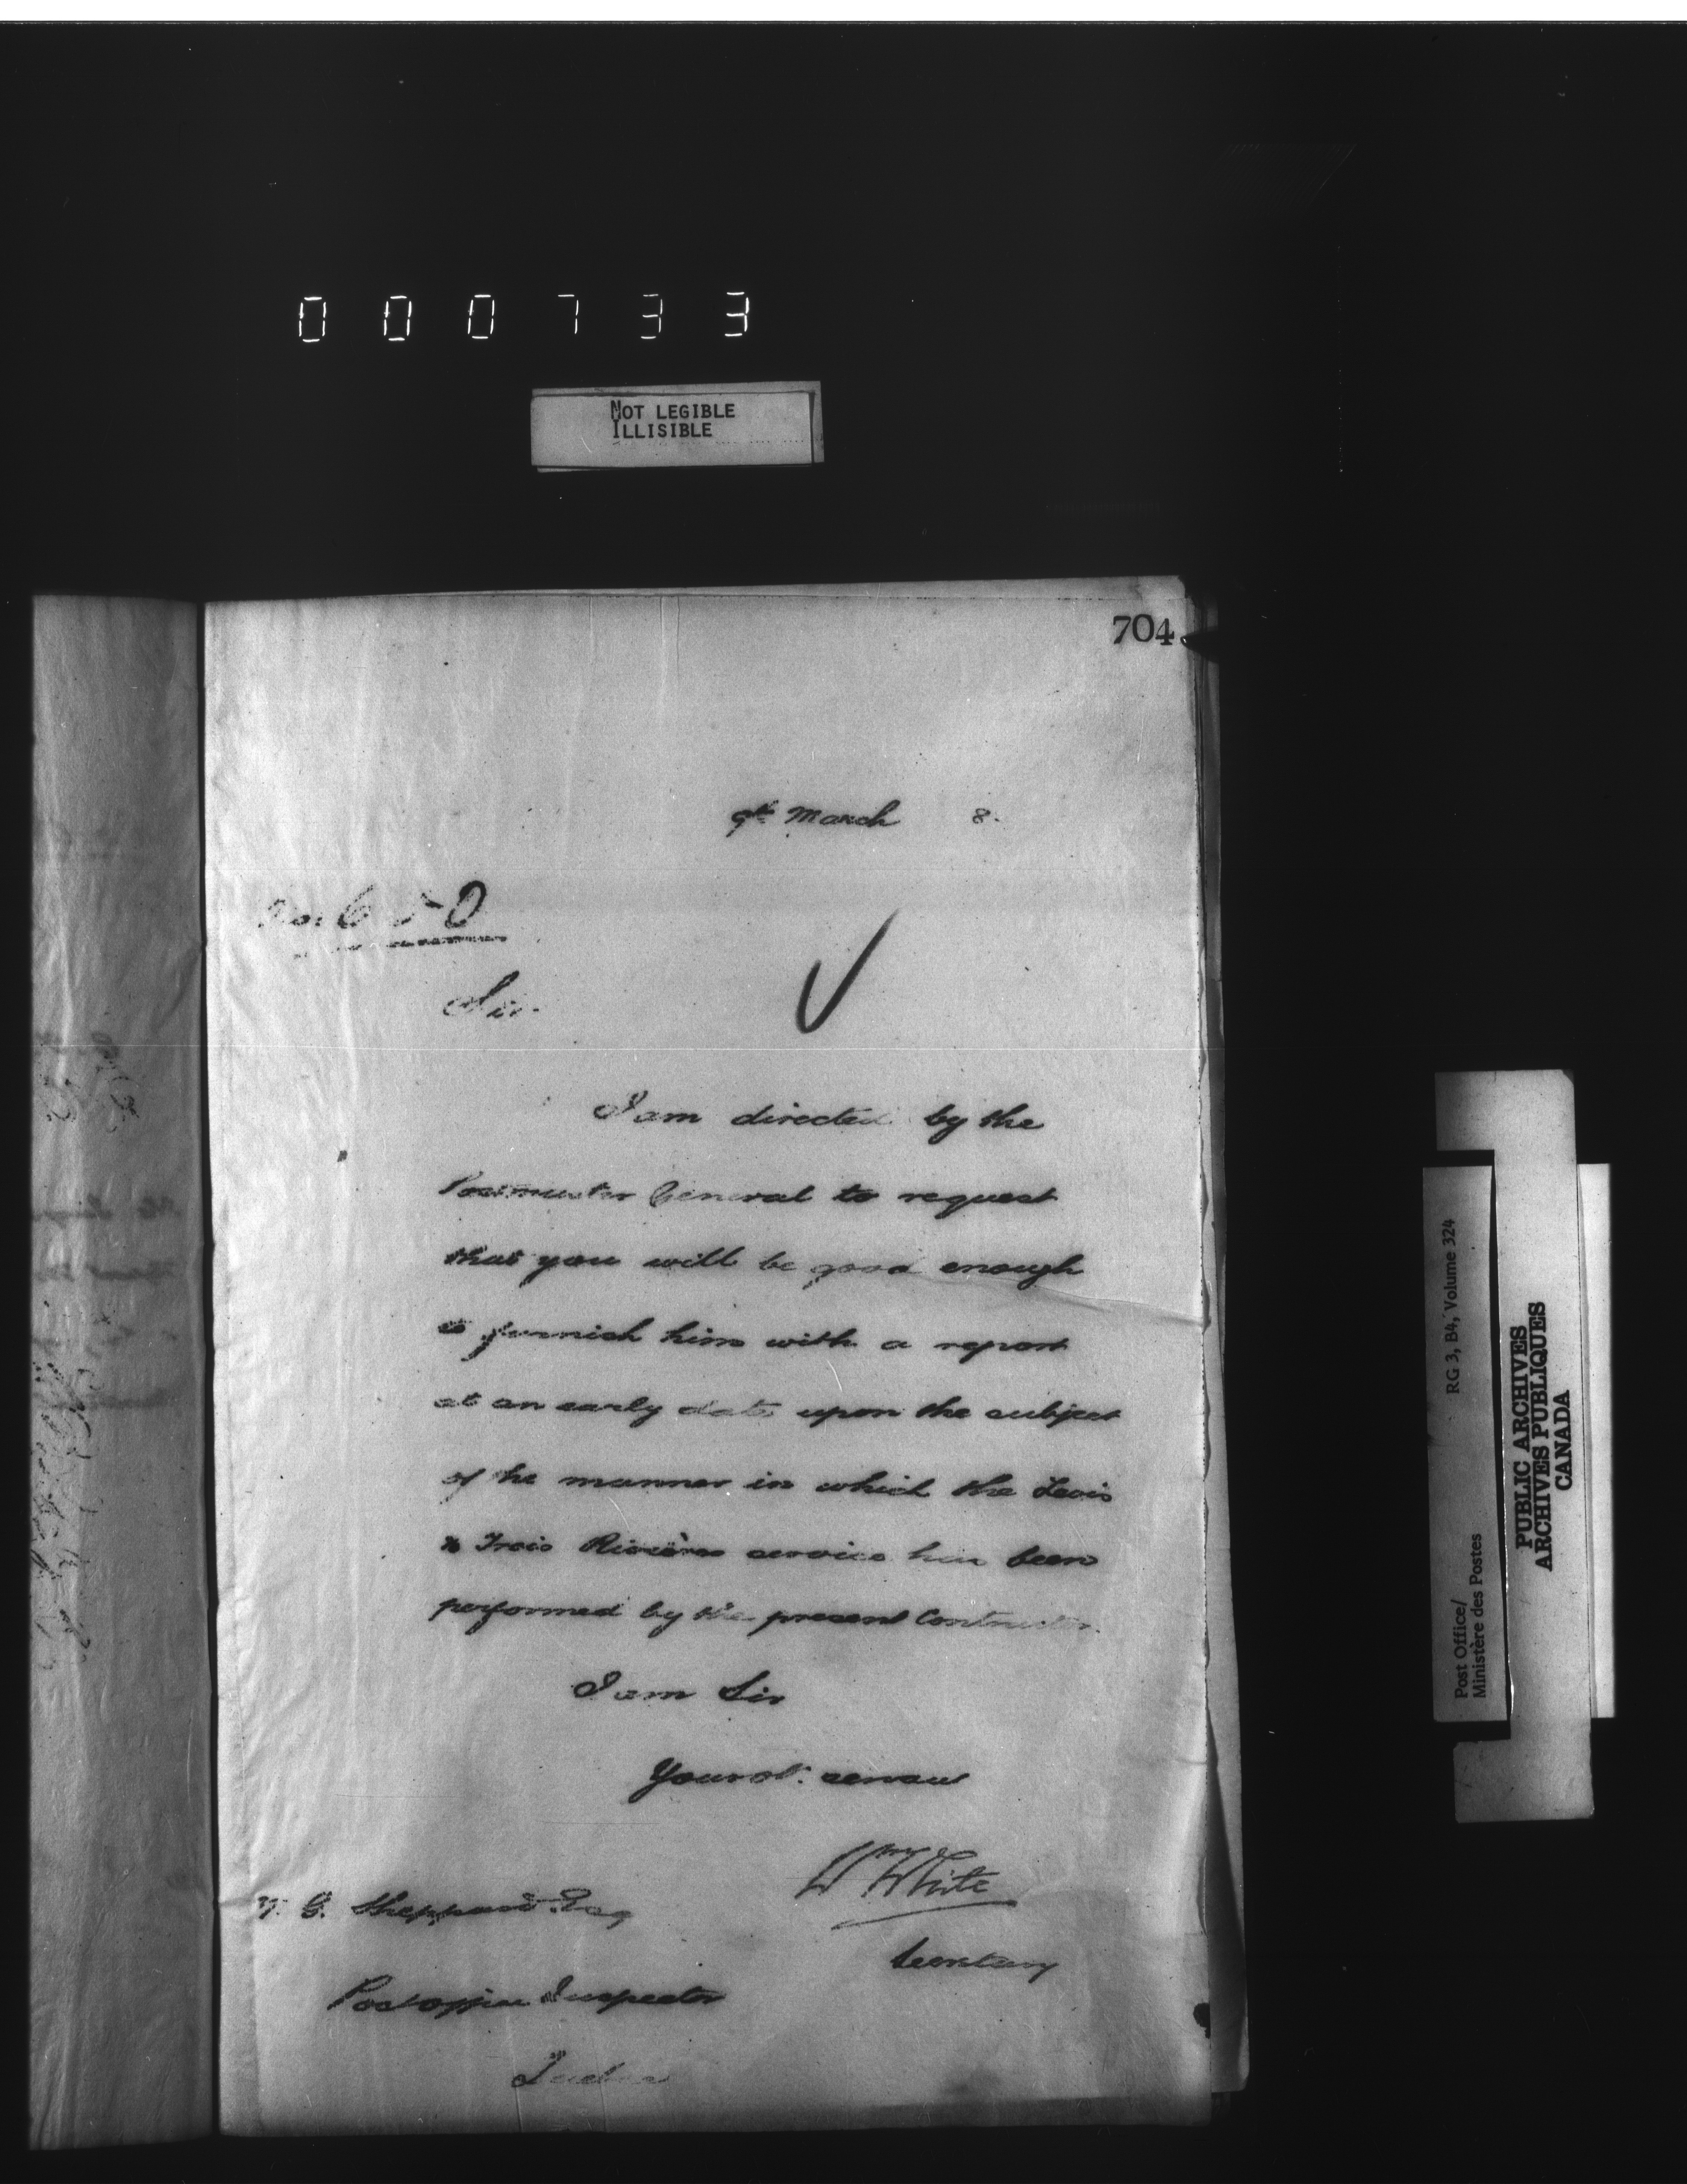 000733
NOT LEGIBLE
ILLISIBLE
704
9th March 8.
No. 650
Sir.
I am directed by the
Postmaster General to request
that you will be good enough
to furnish him with a report
at an early date upon the subject
of the manner in which the Levis
& Trois Rivières service has been
performed by the present Contractor.
I am Sir
Your ob. servant
Wm White
Secretary
G. Sheppard Esq
Post office Inspector
Quebec
RG 3, B4, Volume 324
Post Office/
Ministère des Postes
PUBLIC ARCHIVES
ARCHIVES PUBLIQUES
CANADA